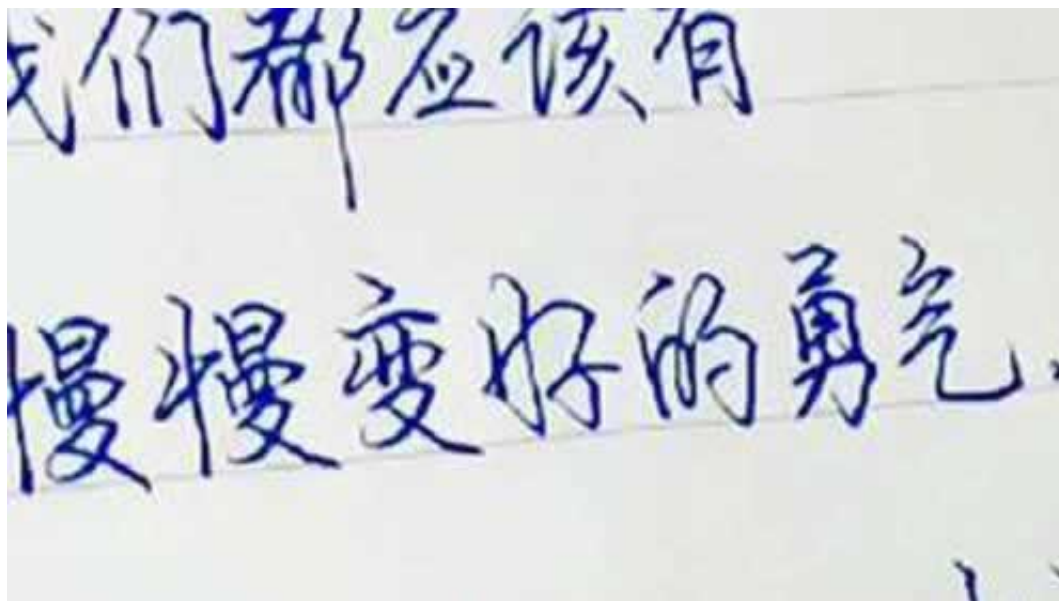 我们都应该有
慢慢变好的勇气